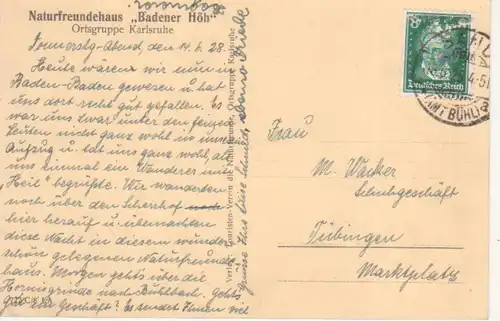 Naturfreundehaus „Badener Höh"
Ortsgruppe Karlsruhe
Donnerstg-Abend, den 14.6.28.
Heute wären wir nun in
Baden-Baden gewesen u hat
uns dort recht gut gefallen. Es
war uns zwar unter den feinen
Leuten nicht ganz wohl in unserm
Aufzug u. tat uns ganz wohl, als
uns einmal ein Wanderer mit
"Heil" begrüsste. Wir wanderten
noch über den Scherrhof noch
hier herauf u. übernachten
diese Nacht in diesem wunder-
schön gelegenen Naturfreunde-
haus. Morgen gehts über die
Hornisgrinde nach Buhlbach. Gehts
gut im Geschäft? Es sendet Ihnen viel
Grüsse Ihre Luise Schmid,
Verlag Touristen-Verein die Naturfreunde, Ortsgruppe Karlsruhe
Deutsches Reich
8
(AMT BÜHL)
Frau
M. Wacker
Schuhgeschäft
Tübingen
Marktplatz